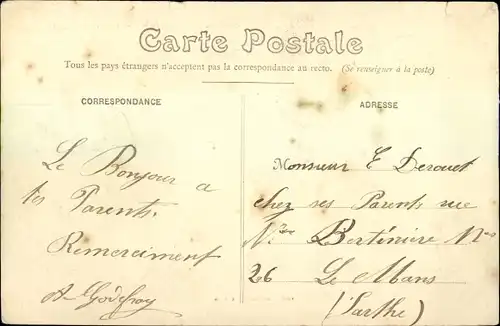 Carte Postale
Tous les pays étrangers n'acceptent pas la correspondance au recto. (Se renseigner à la poste)
CORRESPONDANCE
Le Bonjour a
tes Parents.
Remerciment
A Godefroy
ADRESSE
Monsieur E Derouet
chez ses Parents rue
Bertinière
26 Le Mans
(Sarthe)